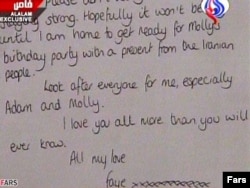 خاص
ALALAM
EXCLUSIVE
Please
strong. Hopefully it won't be
until I am home to get ready for Molly's
birthday party with a present from the Iranian
people.
Look after everyone for me, especially
Adam and Molly.
I love you all more than you will
ever know.
All my love
Faye xxxxxxxxxxxx
FARS
Fars